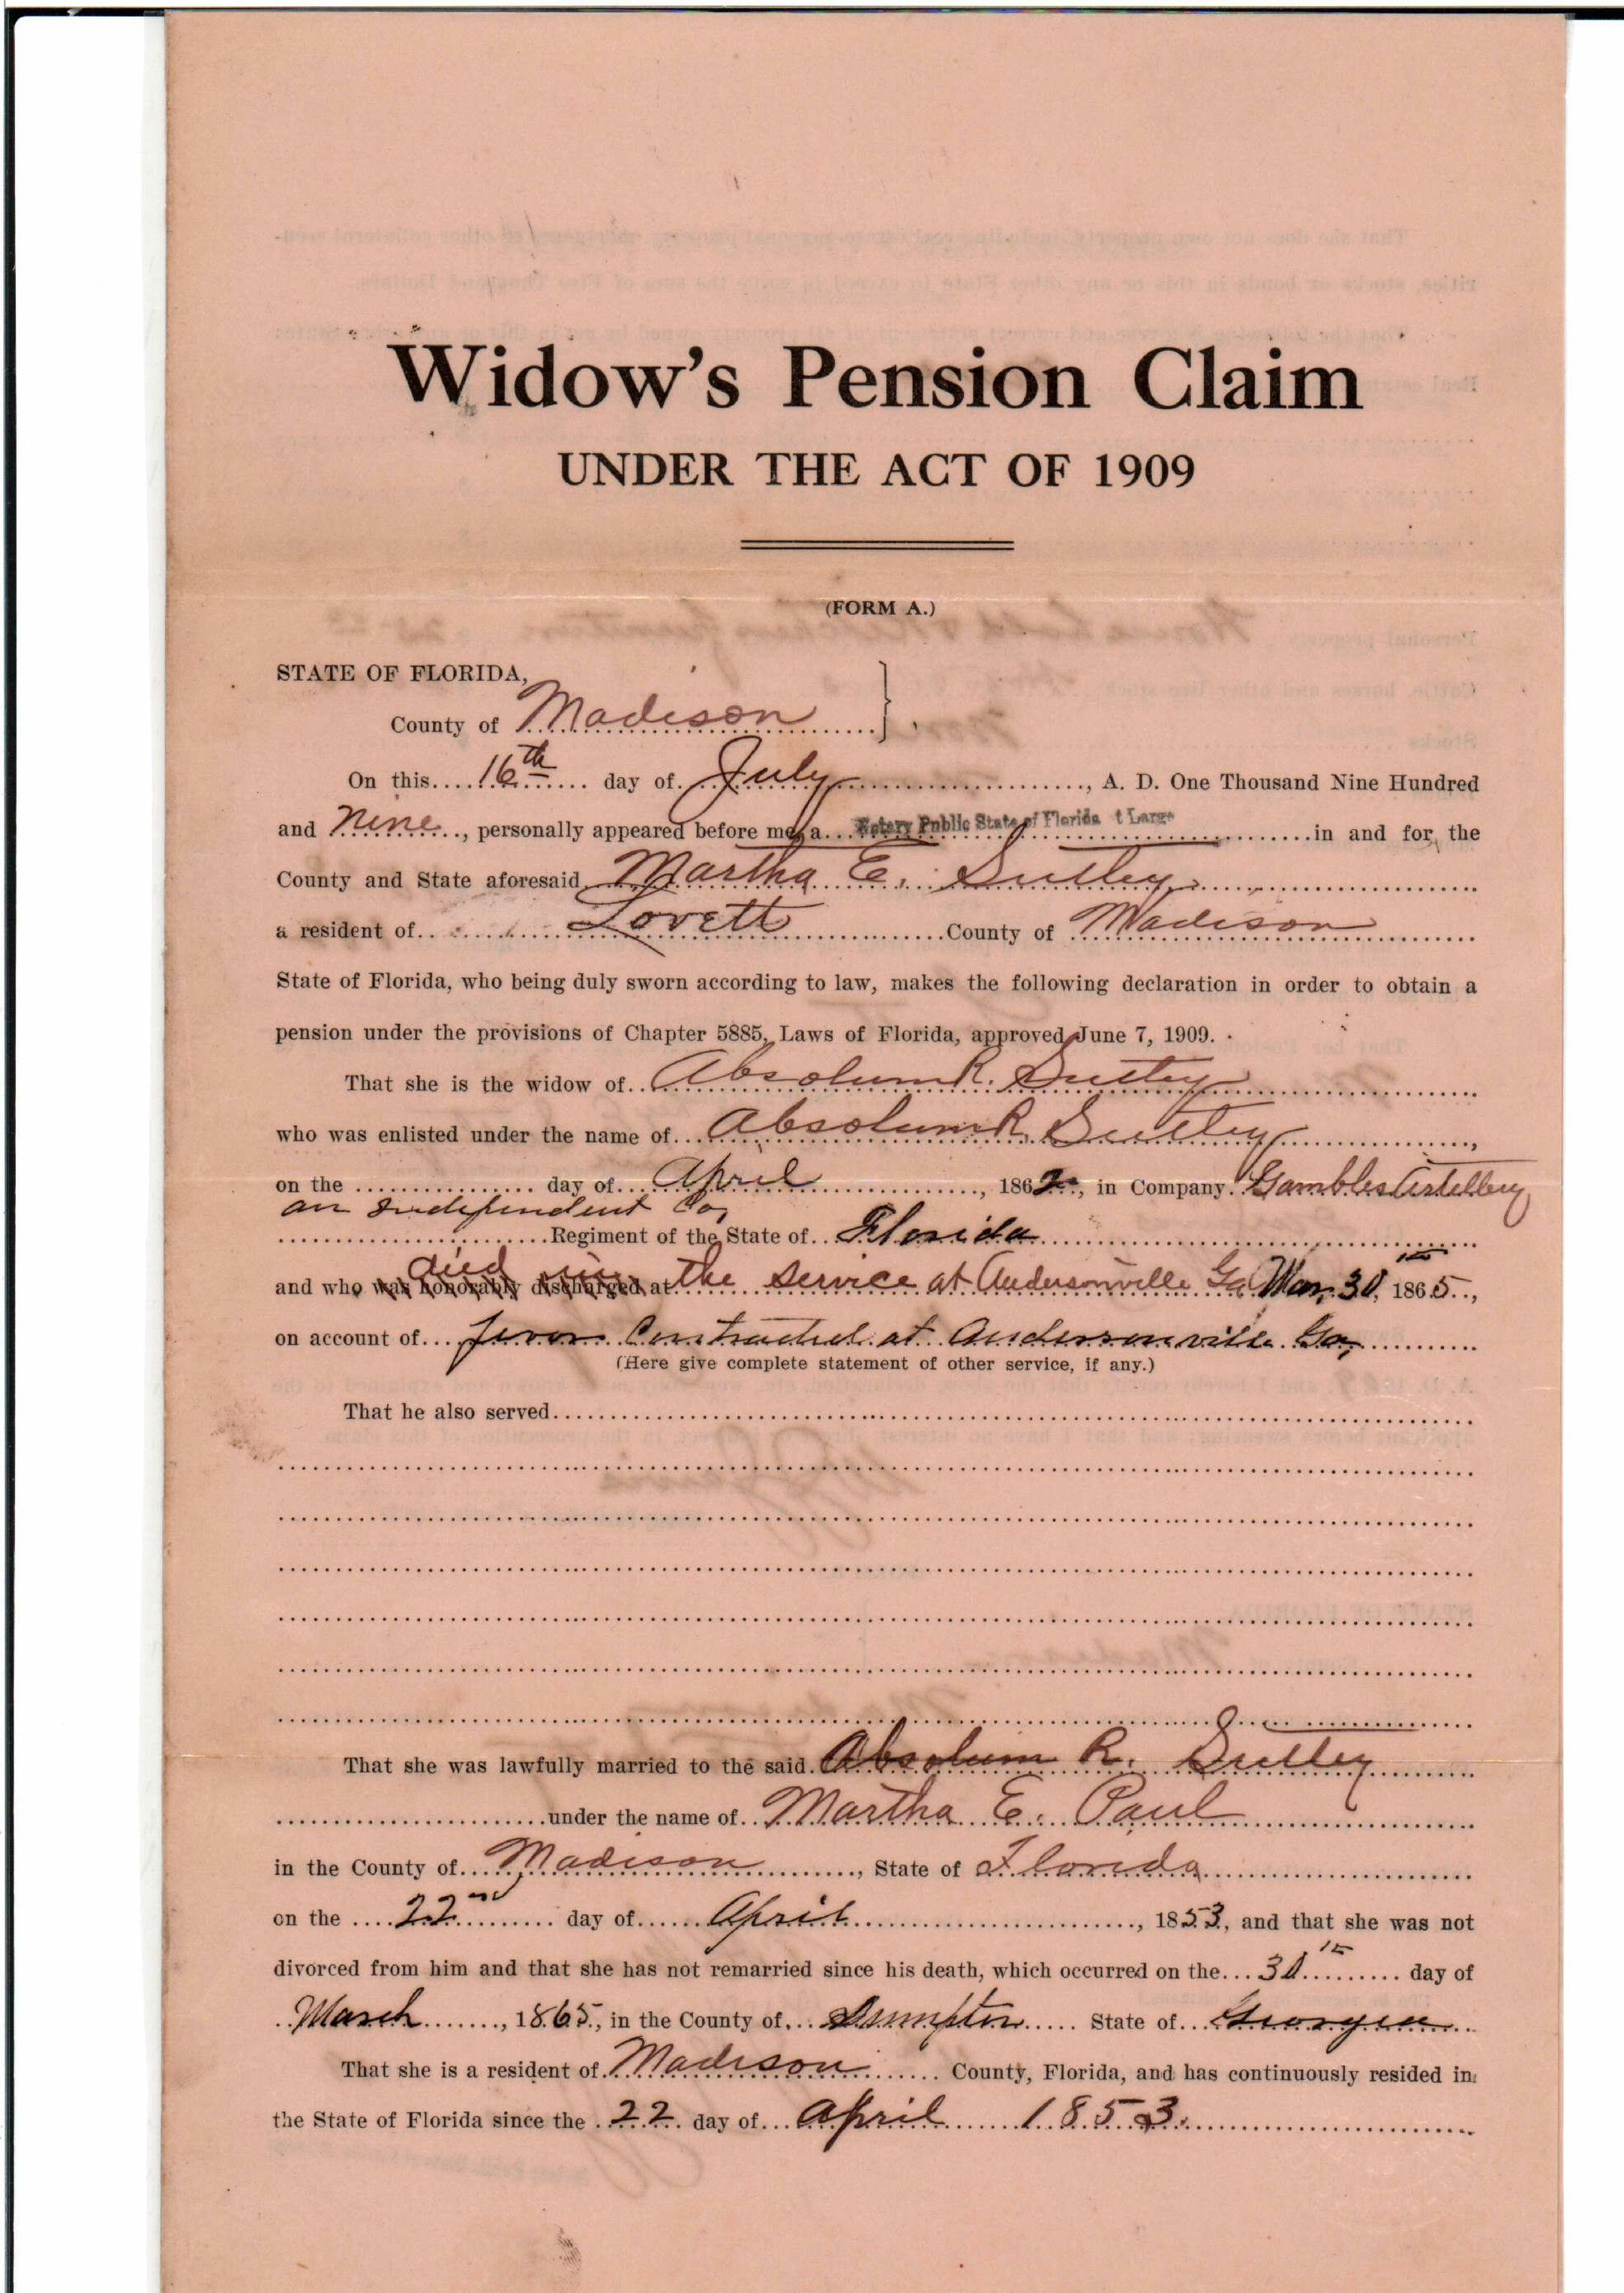 Widow's Pension Claim
UNDER THE ACT OF 1909
(FORM A.)
STATE OF FLORIDA,
County of Madison
On this 16th day of July, A. D. One Thousand Nine Hundred
and nine, personally appeared before me, a Notary Public State of Florida t Large in and for the
County and State aforesaid Martha E. Sutley
a resident of Lovett County of Madison
State of Florida, who being duly sworn according to law, makes the following declaration in order to obtain a
pension under the provisions of Chapter 5885, Laws of Florida, approved June 7, 1909.
That she is the widow of Absolum R. Sutley
who was enlisted under the name of Absolum R. Sutley,
on the day of April, 1862, in Company Gambles Artillery
an Independent Co,
Regiment of the State of Florida
and who was honorably discharged at died in the service at Andersonville Ga Mar, 30th, 1865,
on account of fever Contracted at Andersonville Ga,
(Here give complete statement of other service, if any.)
That he also served
That she was lawfully married to the said Absolum R. Sutley
under the name of Martha E. Paul
in the County of Madison, State of Florida
on the 22nd day of April, 1853, and that she was not
divorced from him and that she has not remarried since his death, which occurred on the 30th day of
March, 1865, in the County of Sumpter State of Georgia
That she is a resident of Madison County, Florida, and has continuously resided in
the State of Florida since the 22 day of April 1853.